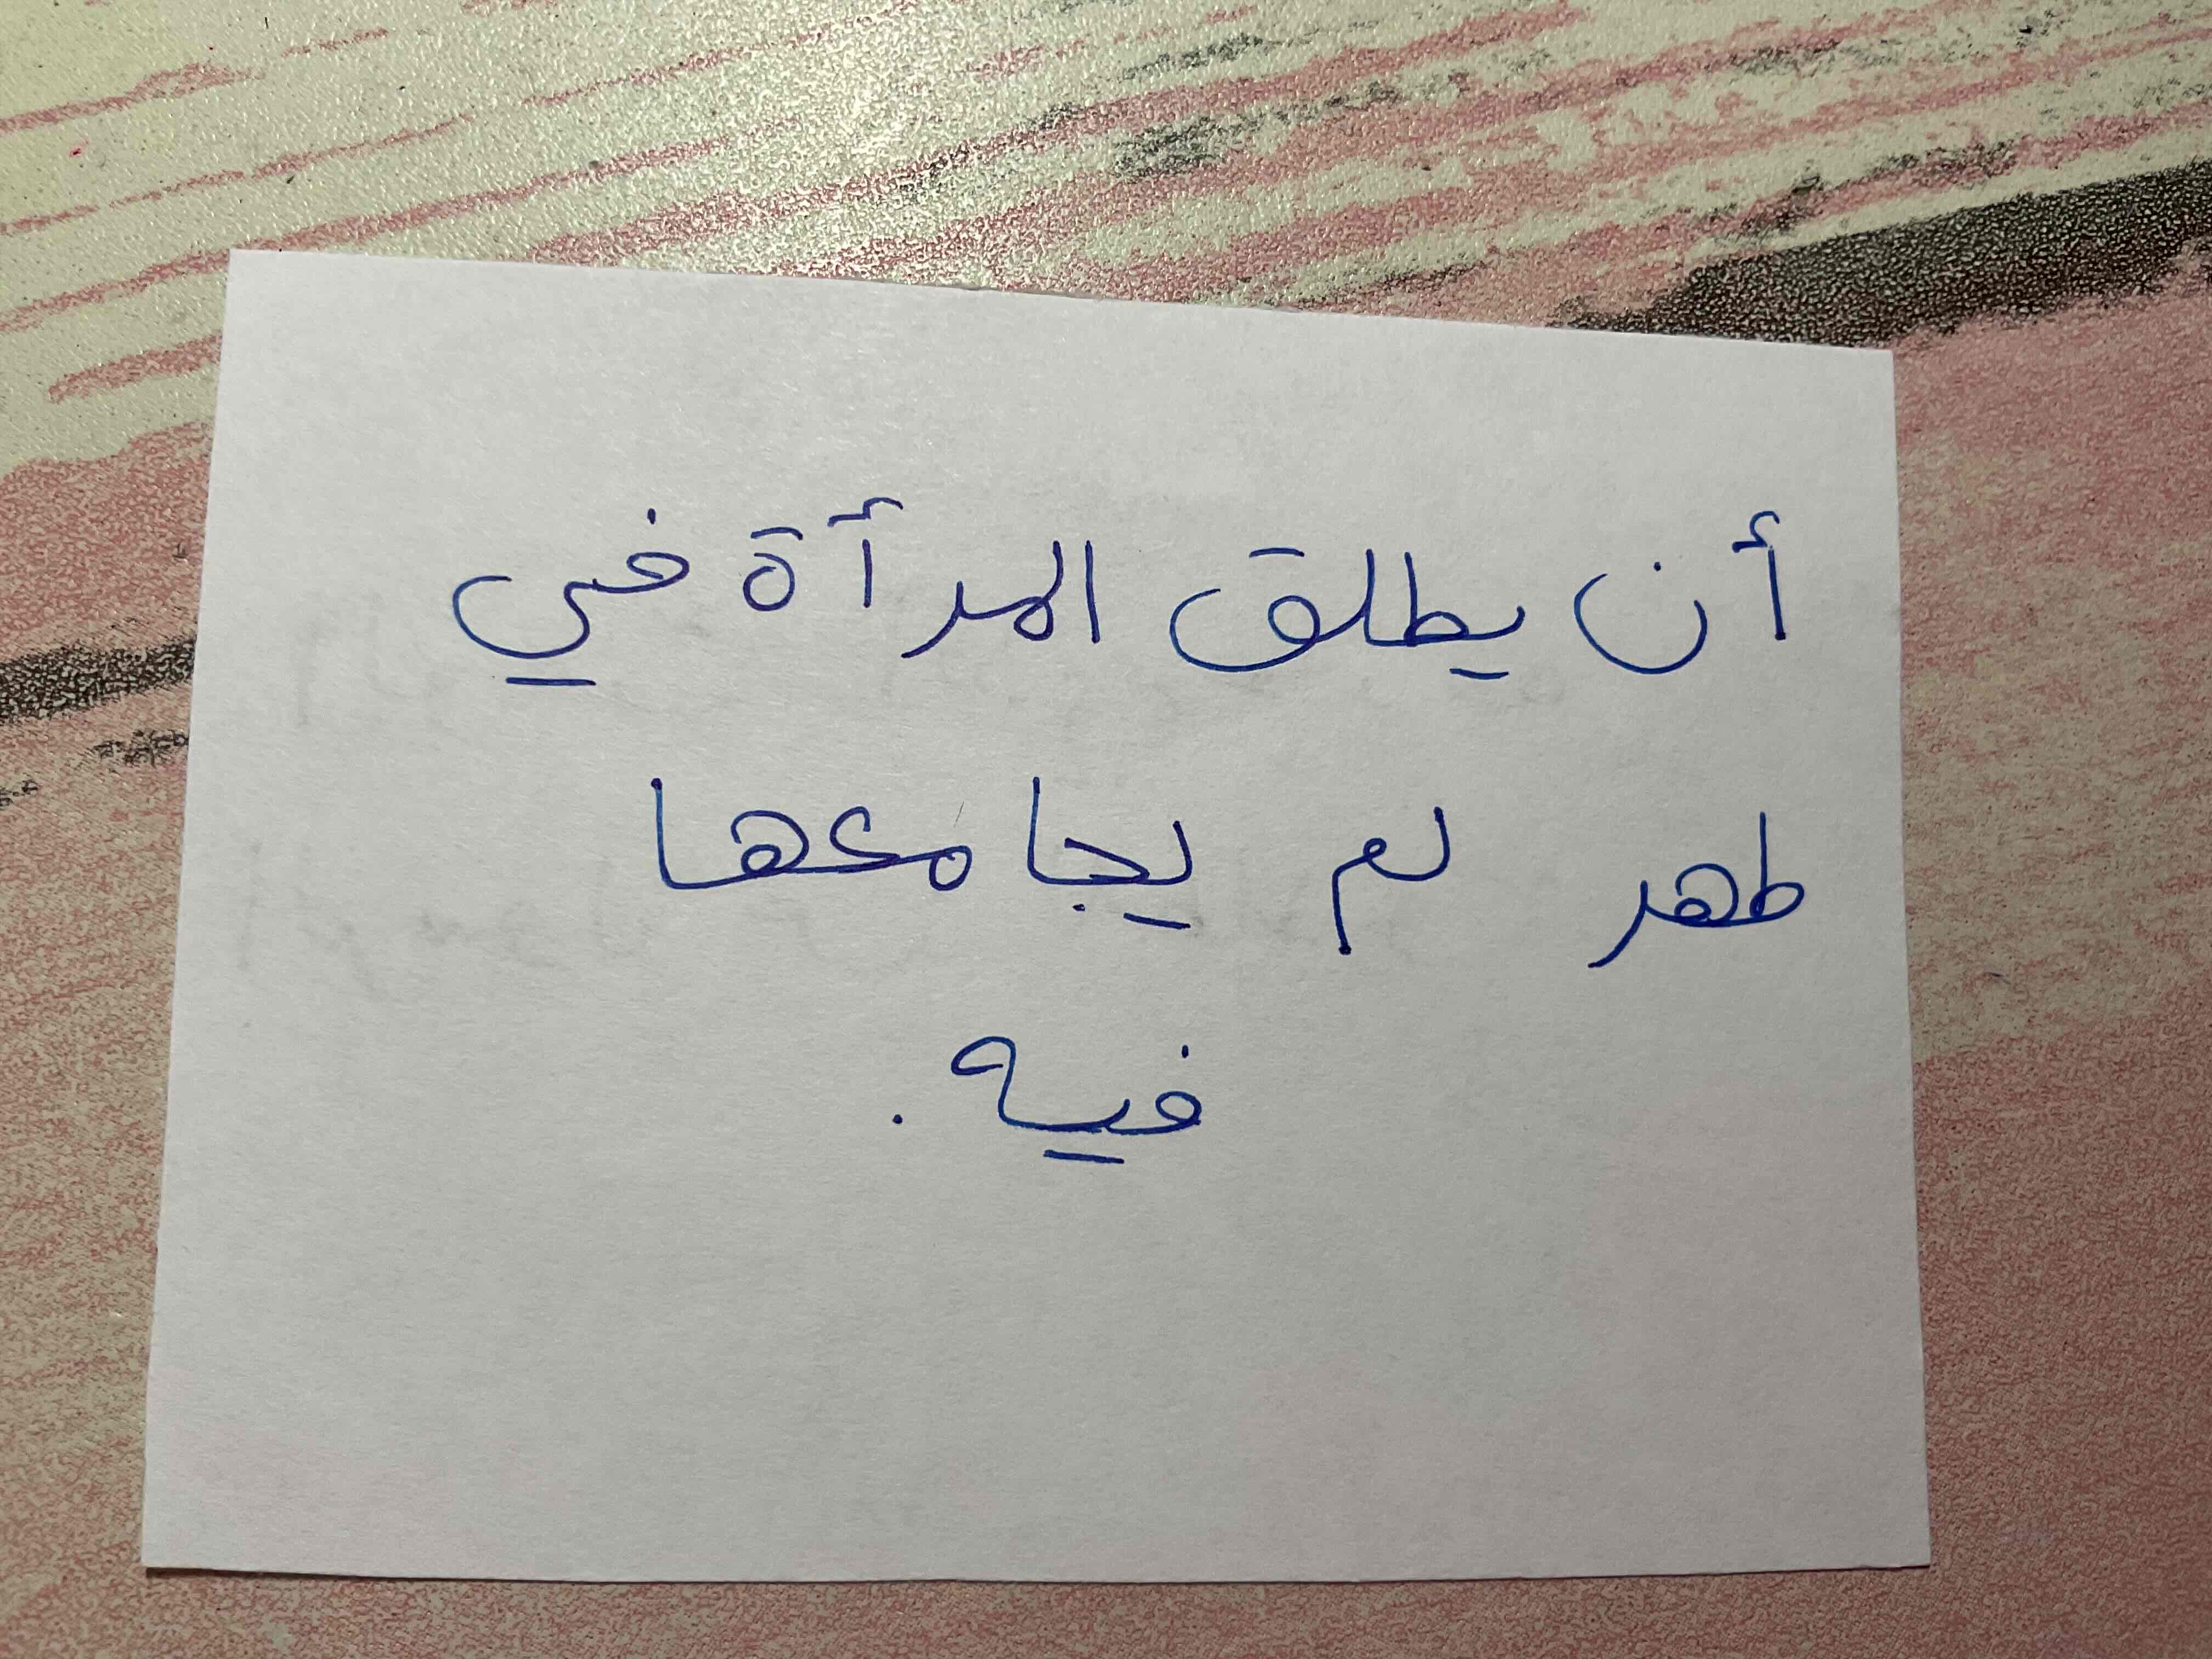 أن يطلق المرأة في
طهر لم يجامعها
فيه.